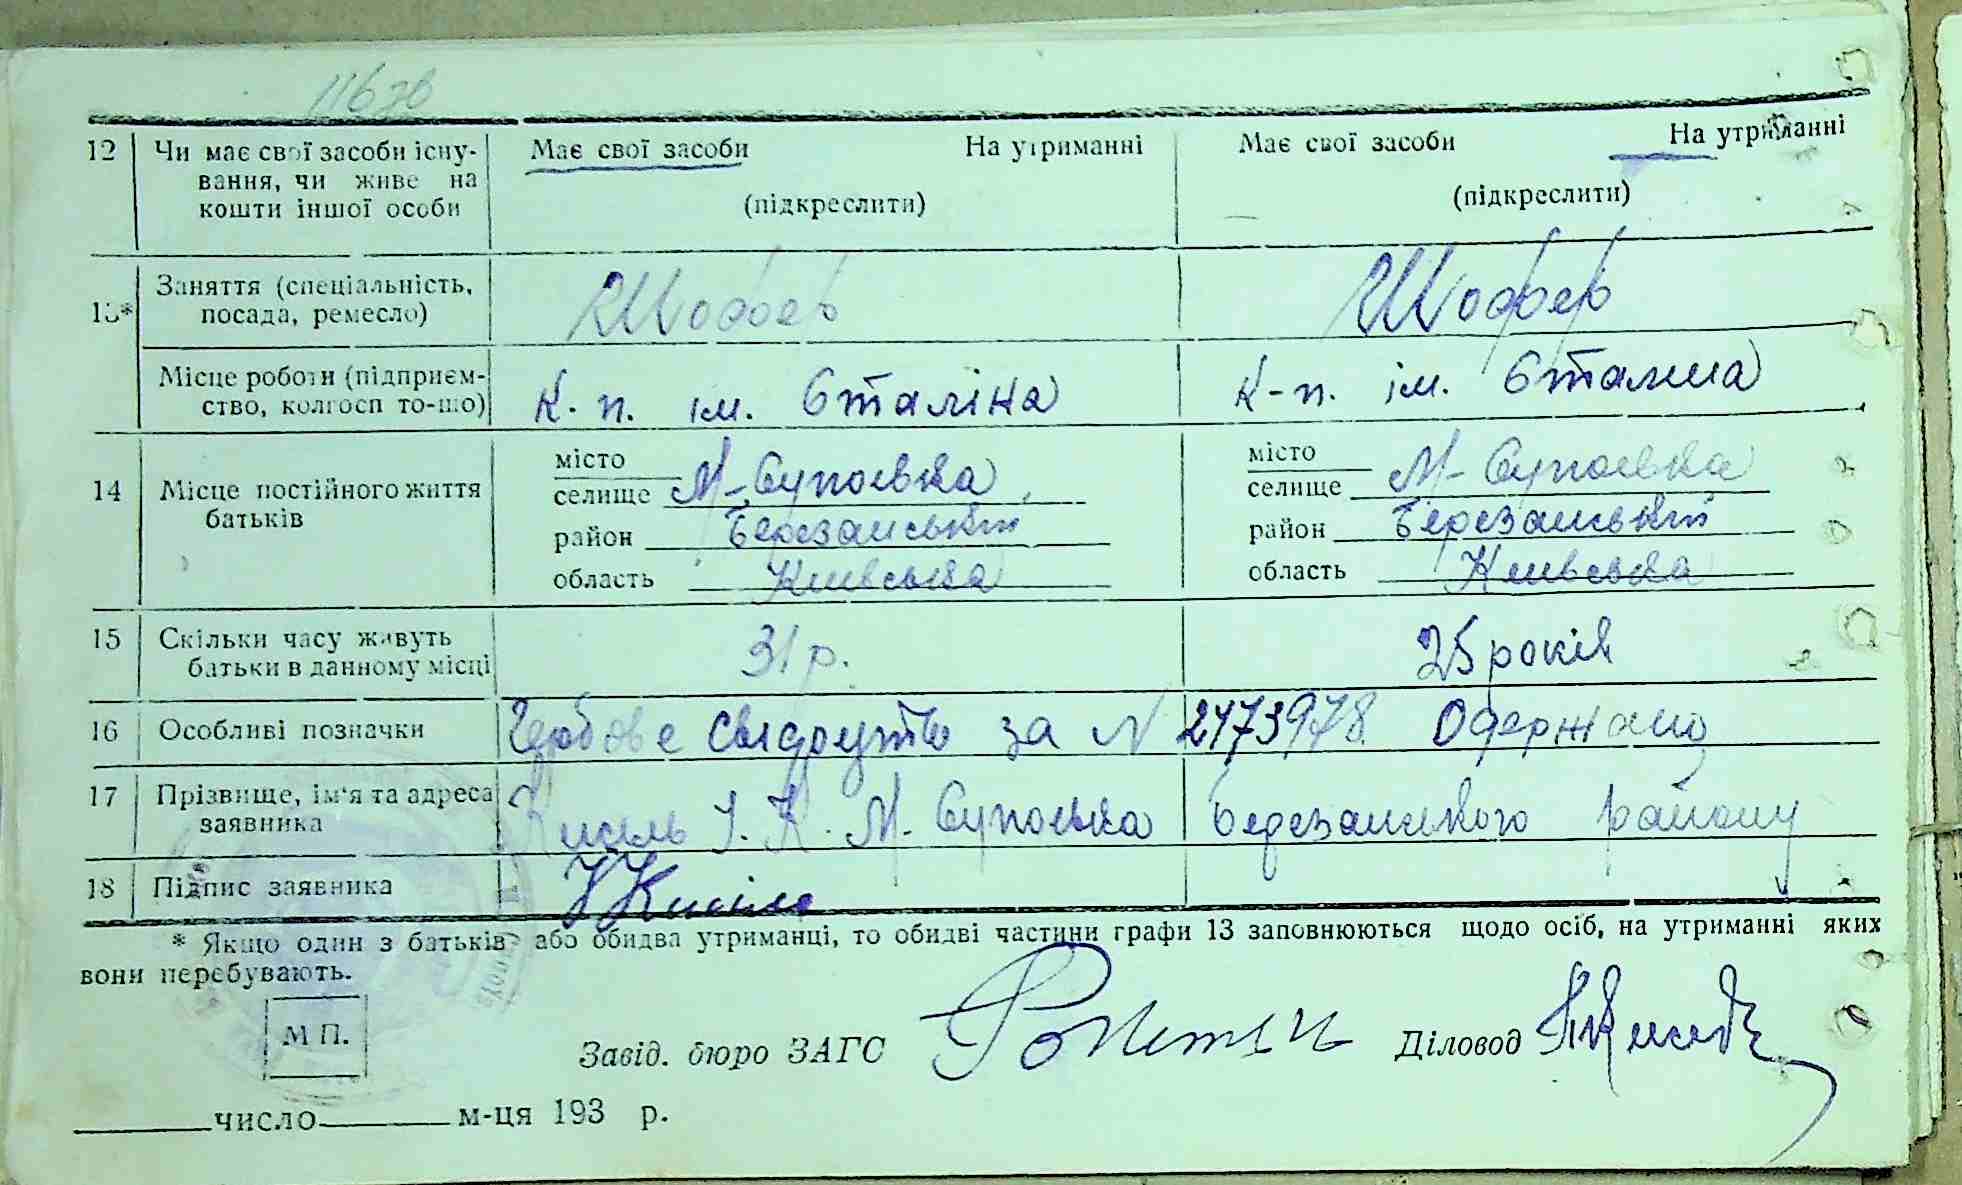 116зв
12 Чи має свої засоби існу- Має свої засоби На утриманні Має свої засоби На утриманні
вання, чи живе на
кошти іншої особи (підкреслити) (підкреслити)
13* Заняття (спеціальність,
посада, ремесло) Шофьер Шофьер
Місце роботи (підприєм-
ство, колгосп то-що) К. п. ім. Сталіна К-п. ім. Сталина
14 Місце постійного життя
батьків
місто місто
селище М-Супоевка селище М-Супоевка
район Березанський район Березанський
область Київська область Київська
15 Скільки часу живуть
батьки в данному місці 31 р. 25 років
16 Особливі позначки Гербове свідоцтво за N 2473978 Одержано
17 Прізвище, ім'я та адреса
заявника Кисіль І. К. М. Супоевка Березанського району
18 Підпис заявника Кисіль
* Якщо один з батьків або обидва утриманці, то обидві частини графи 13 заповнюються щодо осіб, на утриманні яких
вони перебувають.
М П.
Завід. бюро ЗАГС Діловод
число м-ця 193 р.